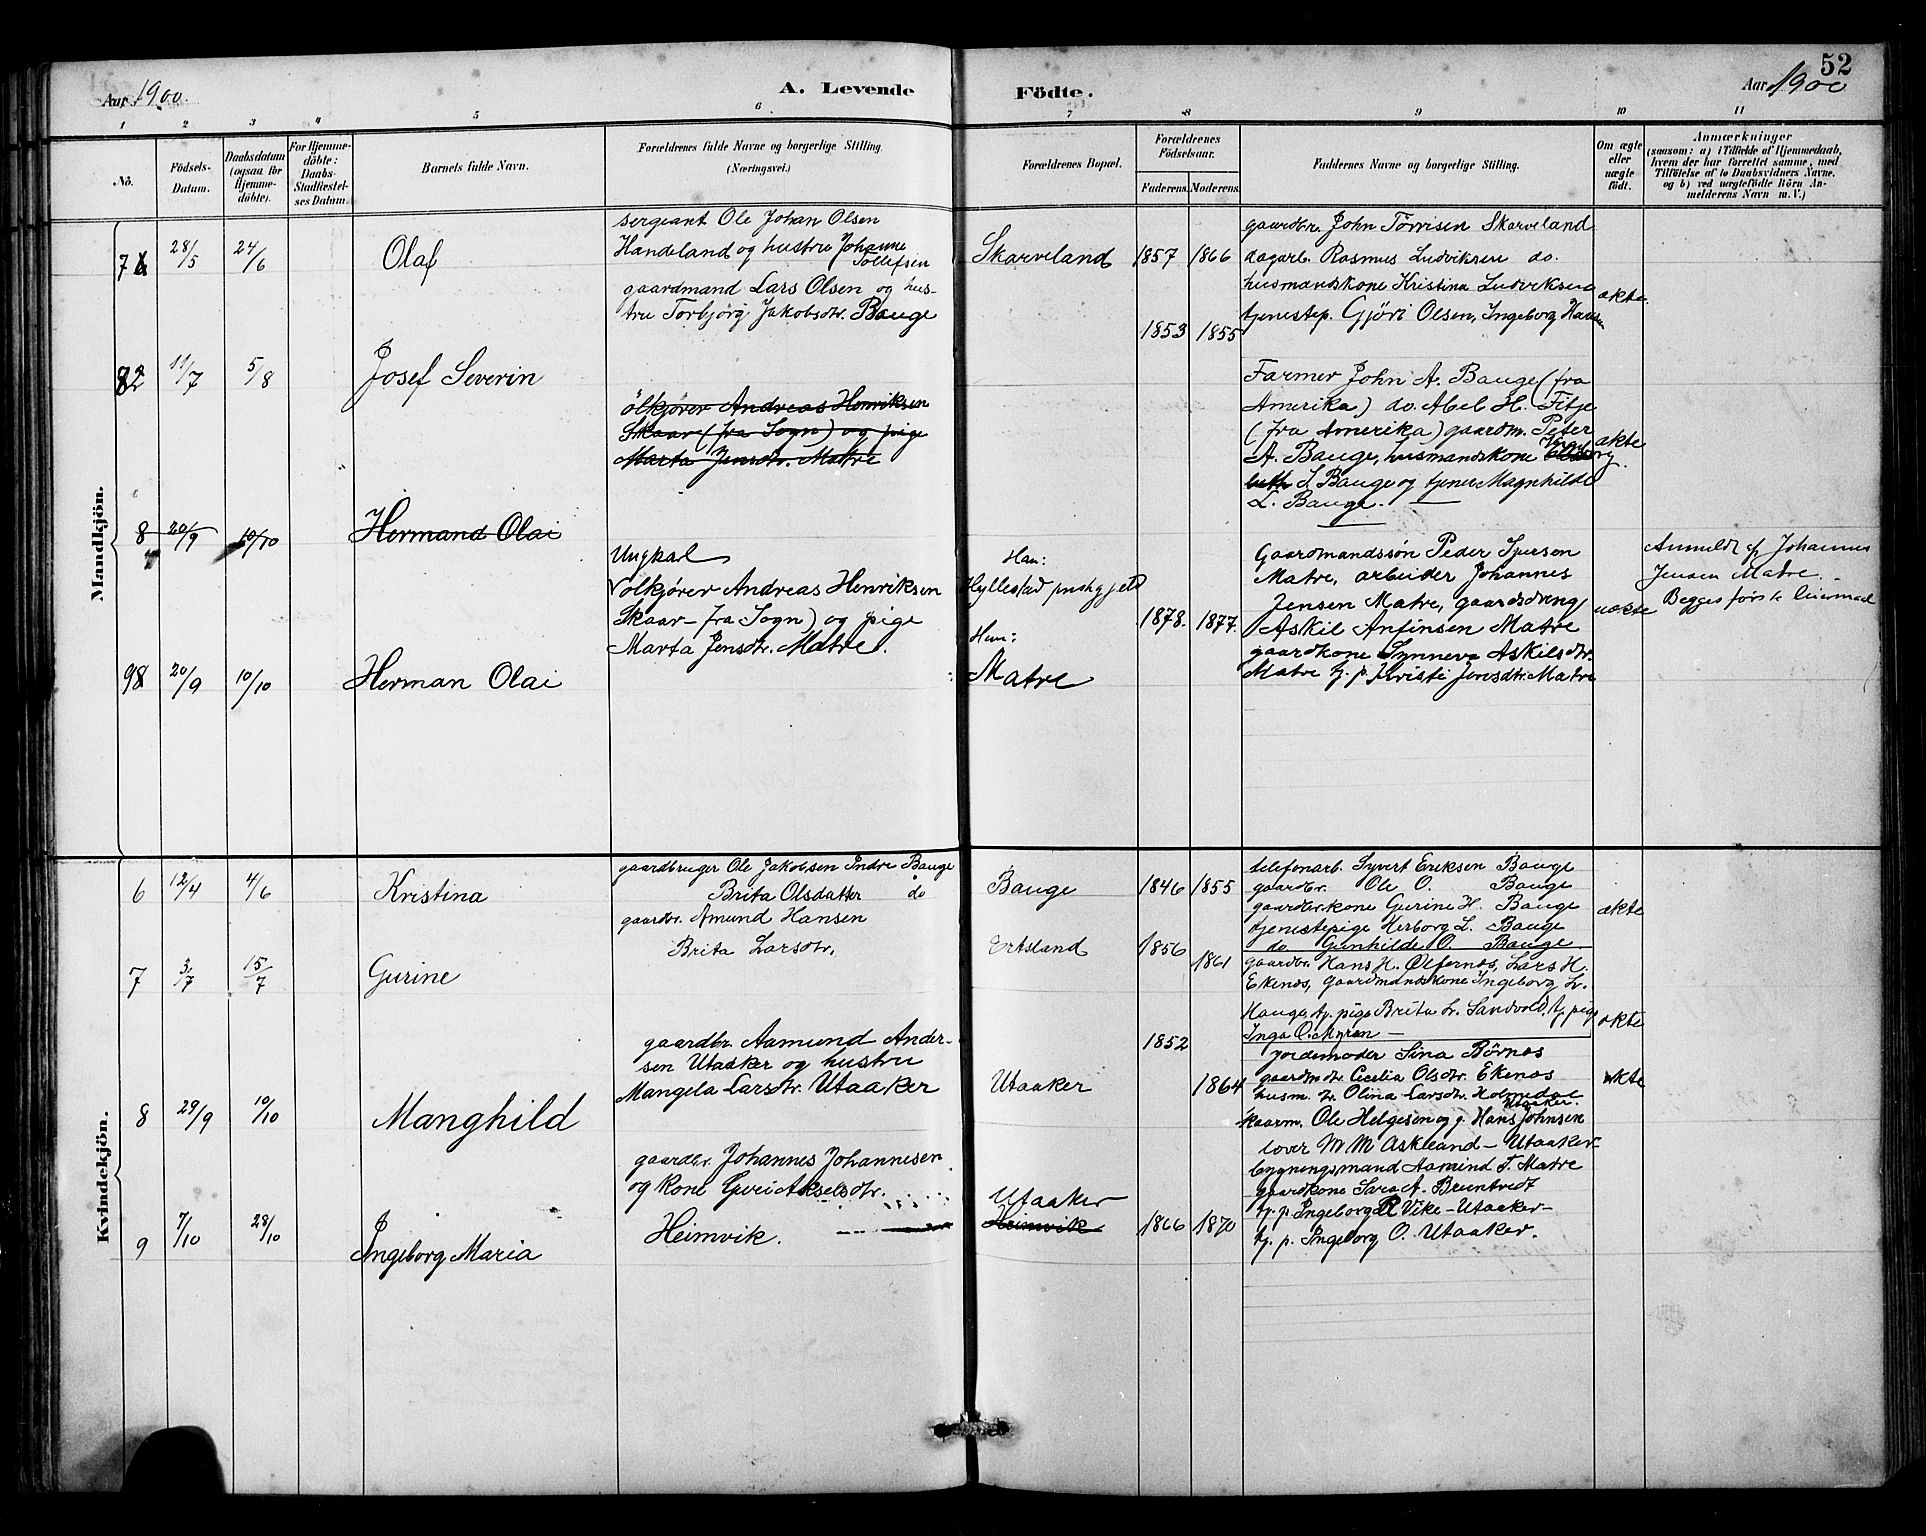 52
Aar 1900.
A. Levende Födte.
Aar 1900
1 2 3 4 5 6 7 8 9 10 11
No.
Födsels-
Datum.
Daabsdatum
(ogsaa for
Hjemme-
döbte).
For Hjemme-
döbte:
Daabs-
Stadfæstel-
ses Datum.
Barnets fulde Navn.
Forældrenes fulde Navne og borgerlige Stilling.
(Næringsvei.)
Forældrenes Bopæl.
Forældrenes
Födselsaar.
Faderens. Moderens.
Faddernes Navne og borgerlige Stilling.
Om ægte
eller
uægte
födt.
Anmærkninger
(saasom: a) i Tilfælde af Hjemmedaab,
hvem der har forrettet samme, med
Tilföielse af to Daabsvidners Navne,
og b) ved uægtefödte Börn An-
melderens Navn m. V.)
Mandkjön.
7 28/5 24/6 Olaf
sergeant Ole Johan Olsen
Handeland og hustru Johanne
Tollefsen
Skarveland 1857 1866
gaardbr. John Törrisen Skarveland
dagarb. Rasmus Ludviksen do.
husmandskone Kristina Ludviksen
tjenestep. Gjöri Olsen, Ingeborg Hansen
ækte
8 11/7 5/8 Josef Severin
gaardmand Lars Olsen og hus-
tru Torbjörg Jakobsdtr. Bauge
1853 1855
Farmer John A. Bauge (fra
Amerika) do. Abel H. Fitje
(fra Amerika) gaardm. Peter
A. Bauge, husmandskone
L. Bauge og tjener Magnhilde
L. Bauge.
ækte
8 20/9 10/10 Hermand Olai
ölkjörer Andreas Henriksen
Skaar (fra Sogn) og pige
Marta Jensdtr. Matre
9 20/9 10/10 Herman Olai
Ungkarl
Volkjörer Andreas Henriksen
Skaar - fra Sogn) og pige
Marta Jensdtr. Matre.
Han:
Hyllestad præstegjeld
Hun:
Matre
1878. 1877.
Gaardmandssön Peder Iversen
Matre, arbeider Johannes
Jensen Matre, gaardsdreng
Askil Anfinsen Matre
gaardkone Synneva Askilsdtr.
Matre tj. p. Kristi Jensdtr. Matre
uækte
Anmeldt af Johannes
Jensen Matre.
Begges förste leiermaal
Kvindekjön.
6 12/4 4/6 Kristina
gaardbruger Ole Jakobsen Indre Bauge
Brita Olsdatter do
Bauge 1846 1855
telefonarb. Syvert Eriksen Bauge
gaardbr. Ole O. Bauge
gaardbrkone Gurine H. Bauge
tjenestepige Herborg L. Bauge
do Gunhilde O. Bauge.
ækte
7 3/7 15/7 Gurine
gaardbr. Amund Hansen
Brita Larsdtr.
Ertsland 1856 1861
gaardbr. Hans H. Ölfernes, Lars H.
Ekenes, gaardmandskone Ingeborg Lr.
Hauge, tj. pige Brita Lr. Sandvold, tj. pige
Inga O. Myran —
ækte
8 29/9 10/10 Manghild
gaardbr. Aamund Ander-
sen Utaaker og hustru
Mangela Larsdtr. Utaaker
Utaaker 1852 1864
jordemoder Sina Börnes
gaardmdtr. Cecelia Olsdtr. Ekenes
husm. dr. Olina Larsdtr. Holmedal
Utaaker.
kaarm. Ole Helgesen og g. Hans Johnsen
ækte
9 7/10 28/10 Ingeborg Maria
gaardbr. Johannes Johannesen
og kone Guri Akselsdtr.
Heimvik.
Utaaker
Heimvik
1866 1870
lover M M Askeland - Utaaker
bygningsmand Aamind T. Matre
gaardkone Sara A. Bruntvedt
tj. p. Ingeborg R Vike - Utaaker -
tj. p. Ingeborg O. Utaaker.